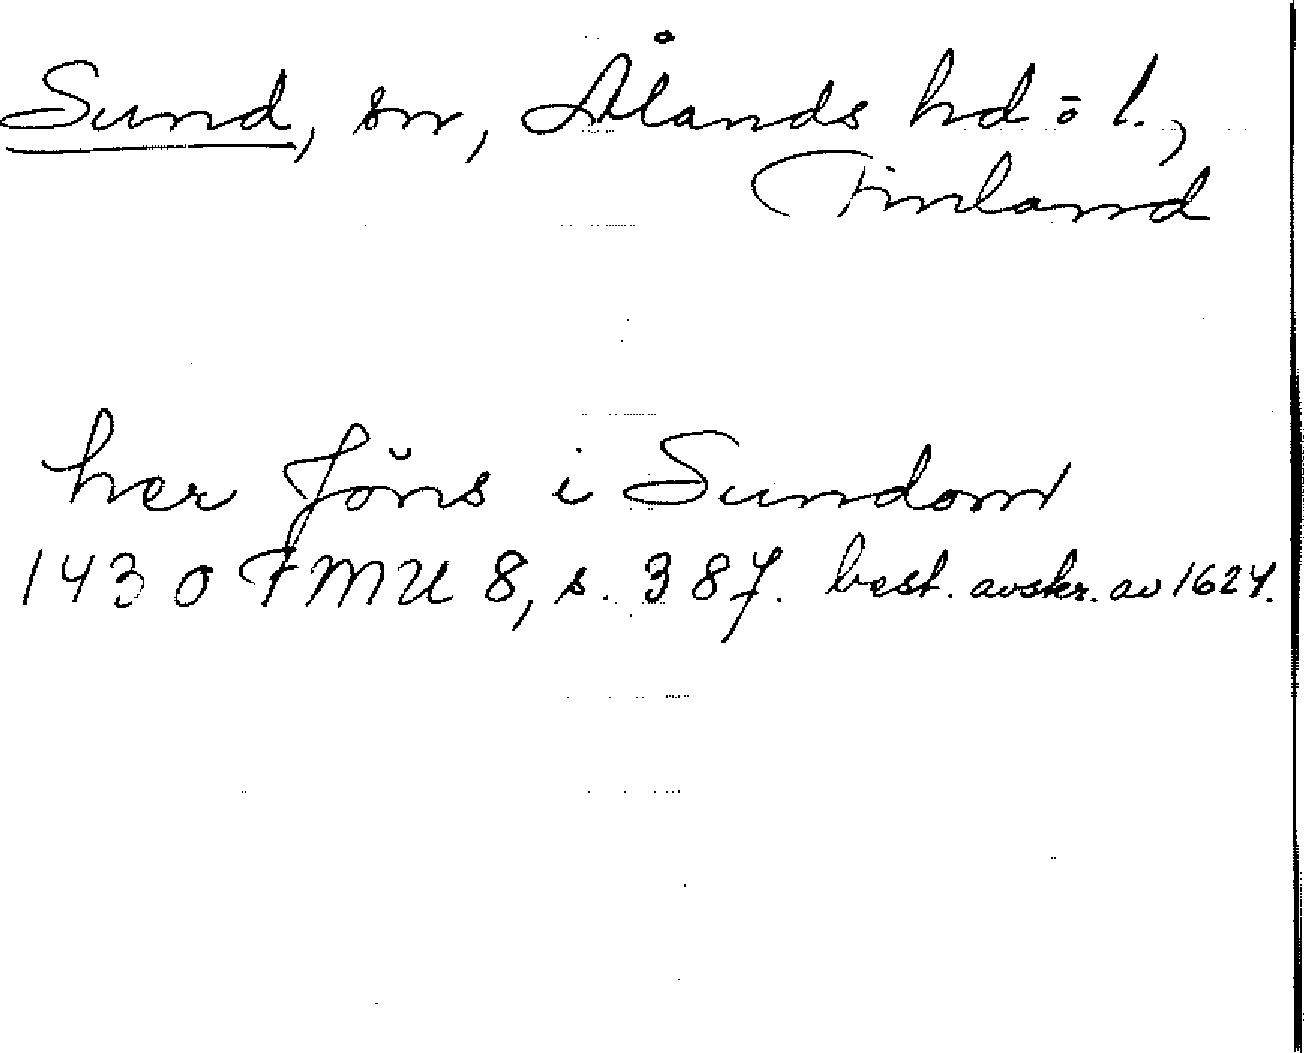 Sund, sn, Ålands hd o l.,
Finland
her Jöns i Sundom
1430 FMU 8, s. 387. best. avskr. av 1627.